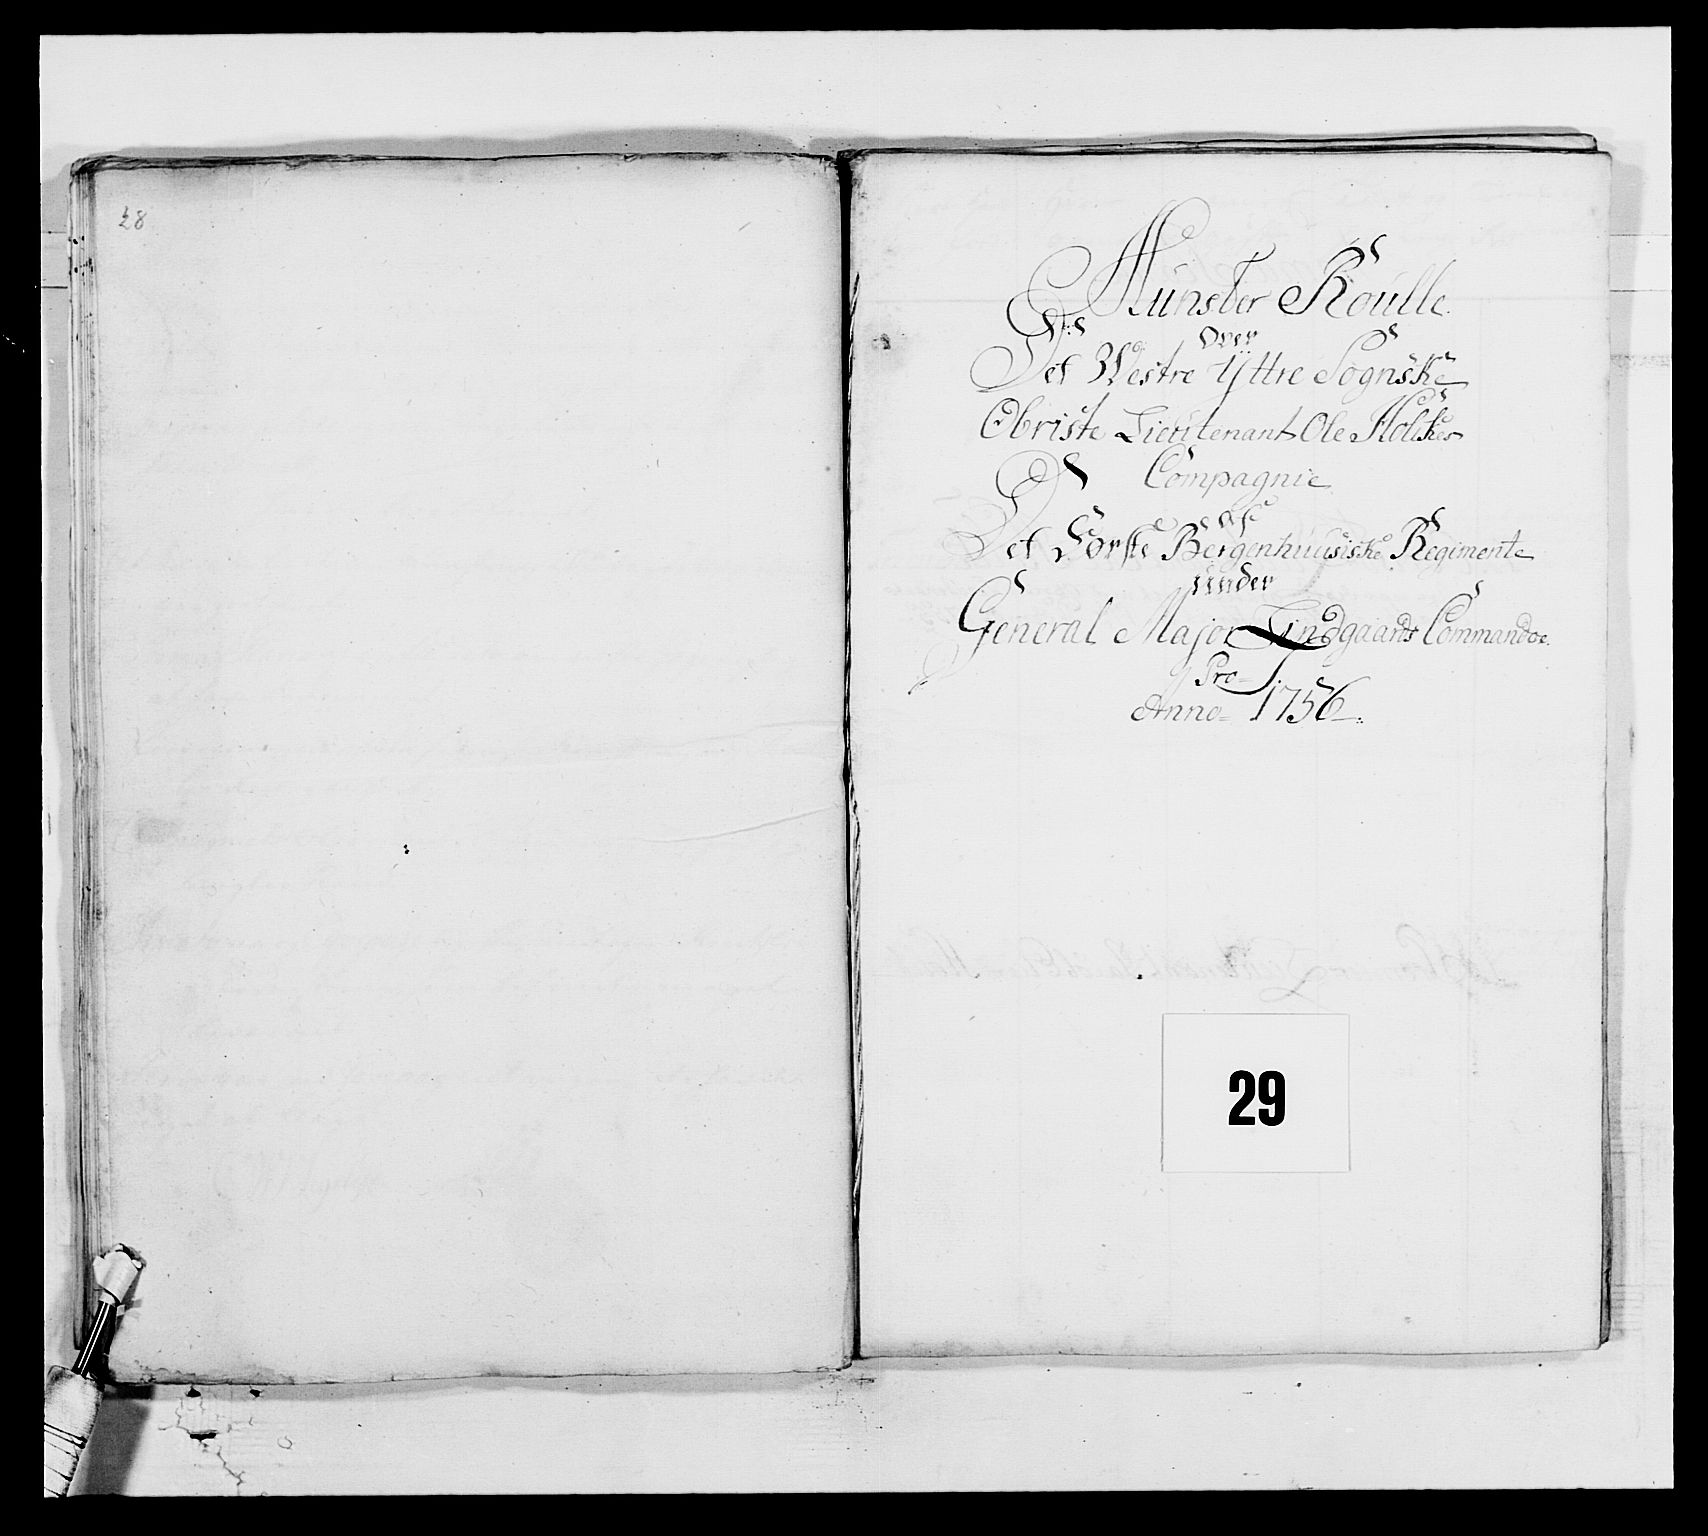 28
Münster Roulle
over
Det Westre Yttre Sognske
Obriste Lieutenant Ole Holckes
Compagnie
af
Det Første Bergenhuusiske Regimente
under
General Major Lindgaards Commandoe
Pro
Anno 1756
29